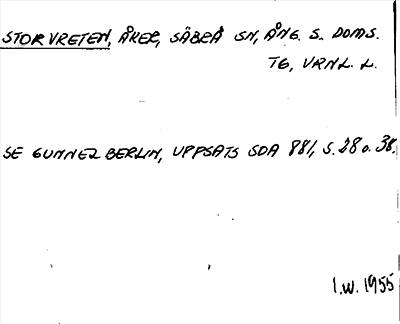 STORVRETEN, ÅKER, SÄBRÅ SN, ÅNG. S. DOMS.
TG, VRNL. L.
SE GUNNEL BERLIN, UPPSATS SDA 881, S. 28 o. 38.
I.W. 1955